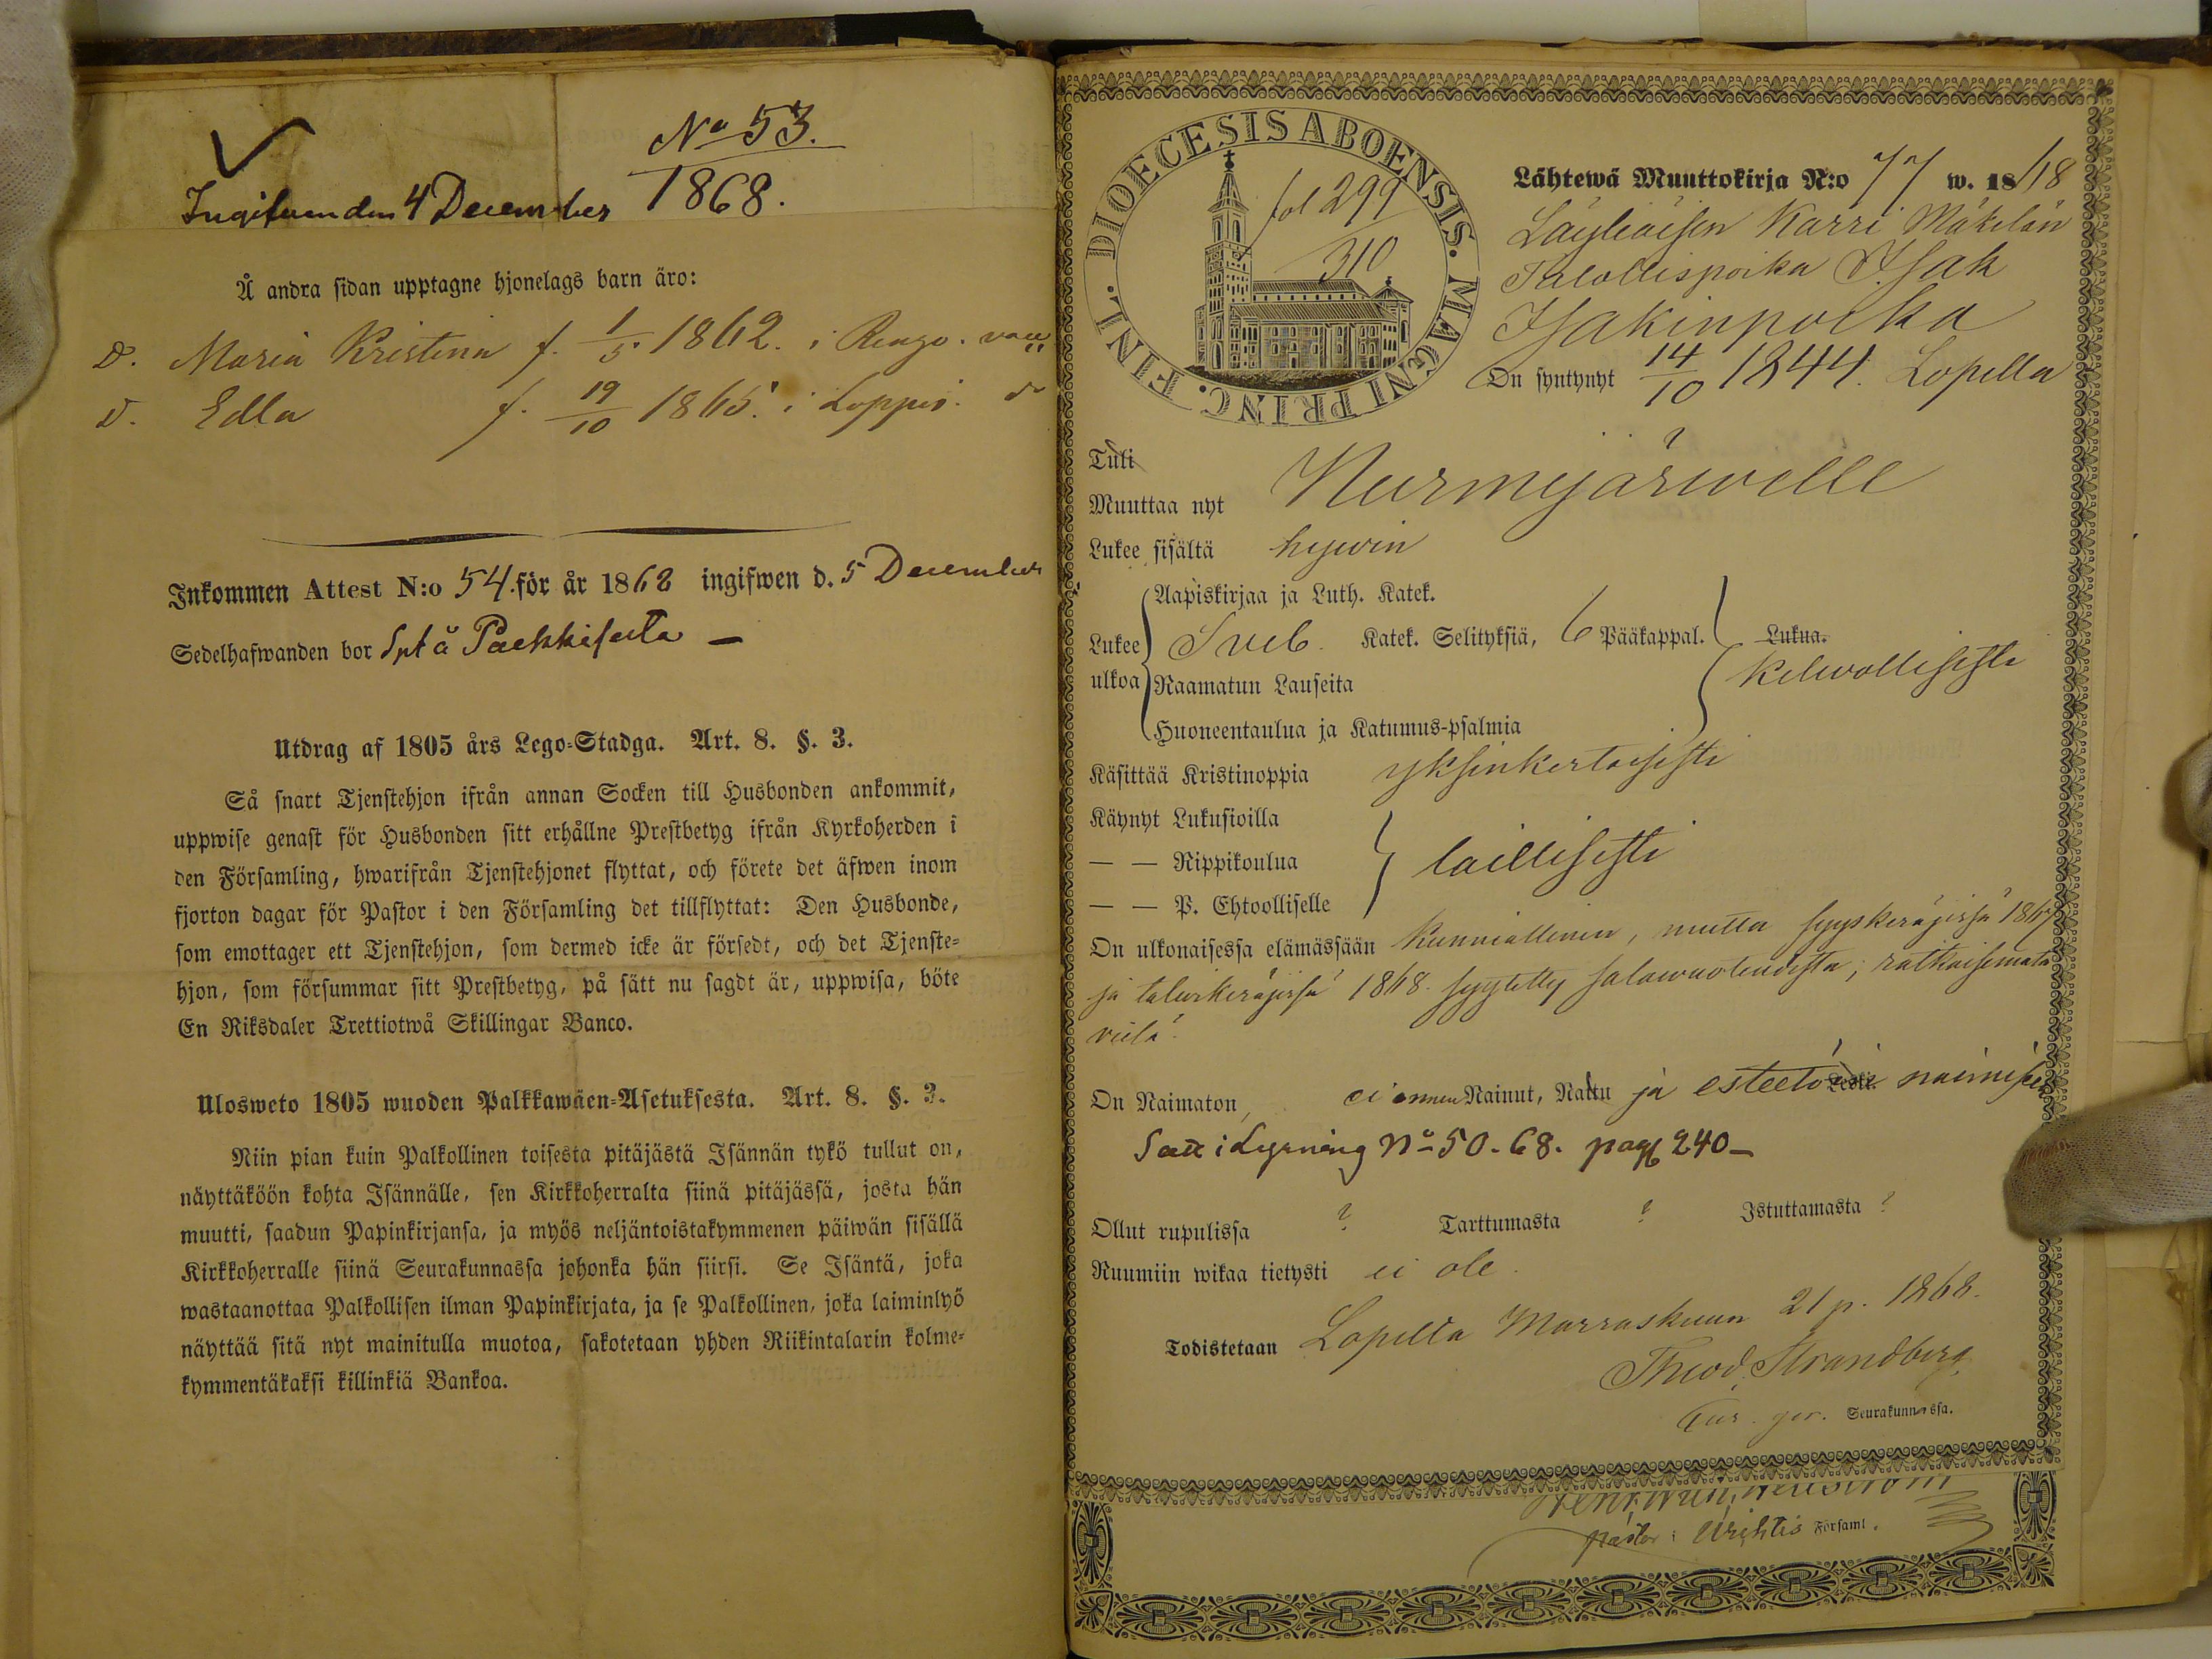 No 53.
1868.
Ingifven den 4 December
Å andra sidan upptagne hjonelags barn äro:
D. Maria Kristina f. 1/5 1862. i Rengo. vacc
D. Edla f. 19/10 1865. i Loppis. do
Inkommen Attest N:o 54. för år 1868 ingifwen d. 5 December
Sedelhafwanden bor Spt å
Utdrag af 1805 års Lego-Stadga. Art. 8. §. 3.
Så snart Tjenstehjon ifrån annan Socken till Husbonden ankommit,
uppwise genast för Husbonden sitt erhållne Prestbetyg ifrån Kyrkoherden i
den Församling, hwarifrån Tjenstehjonet flyttat, och förete det äfwen inom
fjorton dagar för Pastor i den Församling det tillflyttat: Den Husbonde,
som emottager ett Tjenstehjon, som dermed icke är försedt, och det Tjenste-
hjon, som försummar sitt Prestbetyg, på sätt nu sagdt är, uppwisa, böte
En Riksdaler Trettiotwå Skillingar Banco.
Ulosweto 1805 wuoden Palkkawäen-Asetuksesta. Art. 8. §. 3.
Niin pian kuin Palkollinen toisesta pitäjästä Isännän tykö tullut on,
näyttäköön kohta Isännälle, sen Kirkkoherralta siinä pitäjässä, josta hän
muutti, saadun Papinkirjansa, ja myös neljäntoistakymmenen päiwän sisällä
Kirkkoherralle siinä Seurakunnassa johonka hän siirsi. Se Isäntä, joka
wastaanottaa Palkollisen ilman Papinkirjata, ja se Palkollinen, joka laiminlyö
näyttää sitä nyt mainitulla muotoa, sakotetaan yhden Riikintalarin kolme-
kymmentäkaksi killinkiä Bankoa.
DIOECESIS ABOENSIS. MAGNI PRINC. FINL.
fol 299
310
Lähtewä Muuttokirja N:o 77 w. 1868
Läyliäisen Karri Mäkelän
Talollispoika Isak
Isakinpoika
On syntynyt 14/10 1844. Lopella
Tuli ?
Muuttaa nyt Nurmijärwelle
Lukee sisältä hywin
Aapiskirjaa ja Luth. Katek.
Lukee ulkoa Sveb. Katek. Selityksiä, 6 Pääkappal. Lukua.
kelwollisesti
Raamatun Lauseita
Huoneentaulua ja Katumus-psalmia
Käsittää Kristinoppia yksinkertaisesti
Käynyt Lukusioilla
— — Rippikoulua laillisesti
— — P. Ehtoolliselle
On ulkonaisessa elämässään kunniallinen, mutta syyskäräjissä 1867
ja talwikäräjissä 1868 syytetty salawuoteudesta; ratkaisemata
vielä.
On Naimaton, ei ennen Nainut, Naitu ja esteetöin Leski naimiseen
Satt i Lysning No 50-68. pag 240 —
Ollut rupulissa ? Tarttumasta ? Istuttamasta ?
Ruumiin wikaa tietysti ei ole.
Todistetaan Lopella Marraskuun 21 p. 1868.
Theod. Strandberg
Seurakunnassa.
pastor i Wichtis Församl.